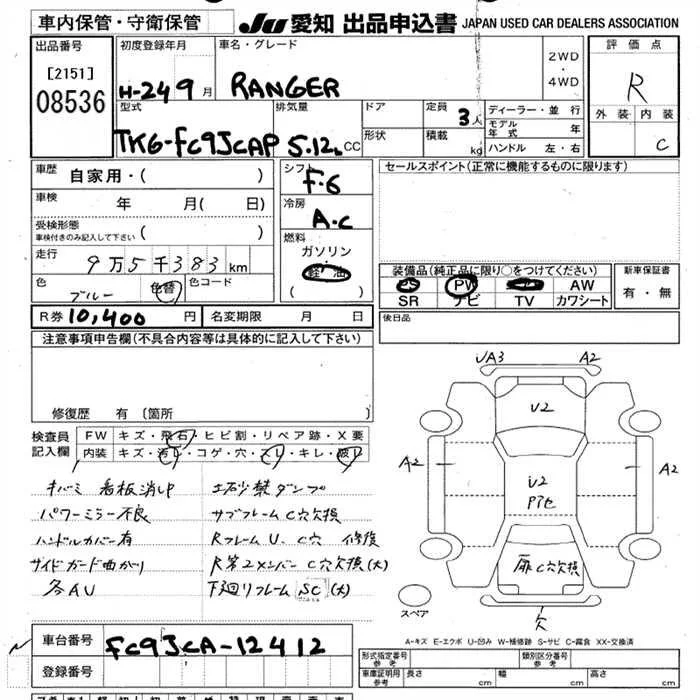 車内保管・守衛保管
JU 愛知 出品申込書 JAPAN USED CAR DEALERS ASSOCIATION
出品番号
[2151]
08536
初度登録年月
H-24 9月
車名・グレード
RANGER
2WD
・
4WD
評価点
R
外装 内装
C
型式
TKG-FC9JCAP
排気量
5.12L CC
ドア
形状
定員
3人
積載
kg
ディーラー・並行
モデル年式 年
ハンドル 左・右
車歴
自家用・( )
車検
年 月( 日)
受検形態
車検付きのみ記入して下さい ( )
走行
9万5千383km
色
ブルー
色替
色コード
シフト
F・6
冷房
A・C
燃料
ガソリン
・
軽・油
( )
セールスポイント(正常に機能するものに限ります)
装備品(純正品に限り○をつけてください)
PS PW AW
SR ナビ TV カワシート
新車保証書
有・無
R券 10,400 円
名変期限 月 日
後日品
注意事項申告欄(不具合内容等は具体的に記入して下さい)
修復歴 有 (箇所
検査員
記入欄
FW キズ・飛石・ヒビ割・リペア跡・X要
内装 キズ・汚レ・コゲ・穴・スレ・キレ・破レ
キバミ 看板消し 土石砂禁ダンプ
パワーミラー不良 サブフレームC穴欠損
ハンドルカバー有 RフレームU、C穴 修復
サイドガード曲がり R第2メンバーC穴欠損(大)
各AU 下廻リフレームSC(大)
UA3
A2
U2
A2
U2
A2
扉C穴欠損
欠
スペア
A-キズ E-エクボ U-凹み W-補修跡 S-サビ C-腐食 XX-交換済
車台番号
FC9JCA-12412
登録番号
形式指定番号
参考
類別区分番号
参考
車庫証明用
参考
長さ cm
幅 cm
高さ cm